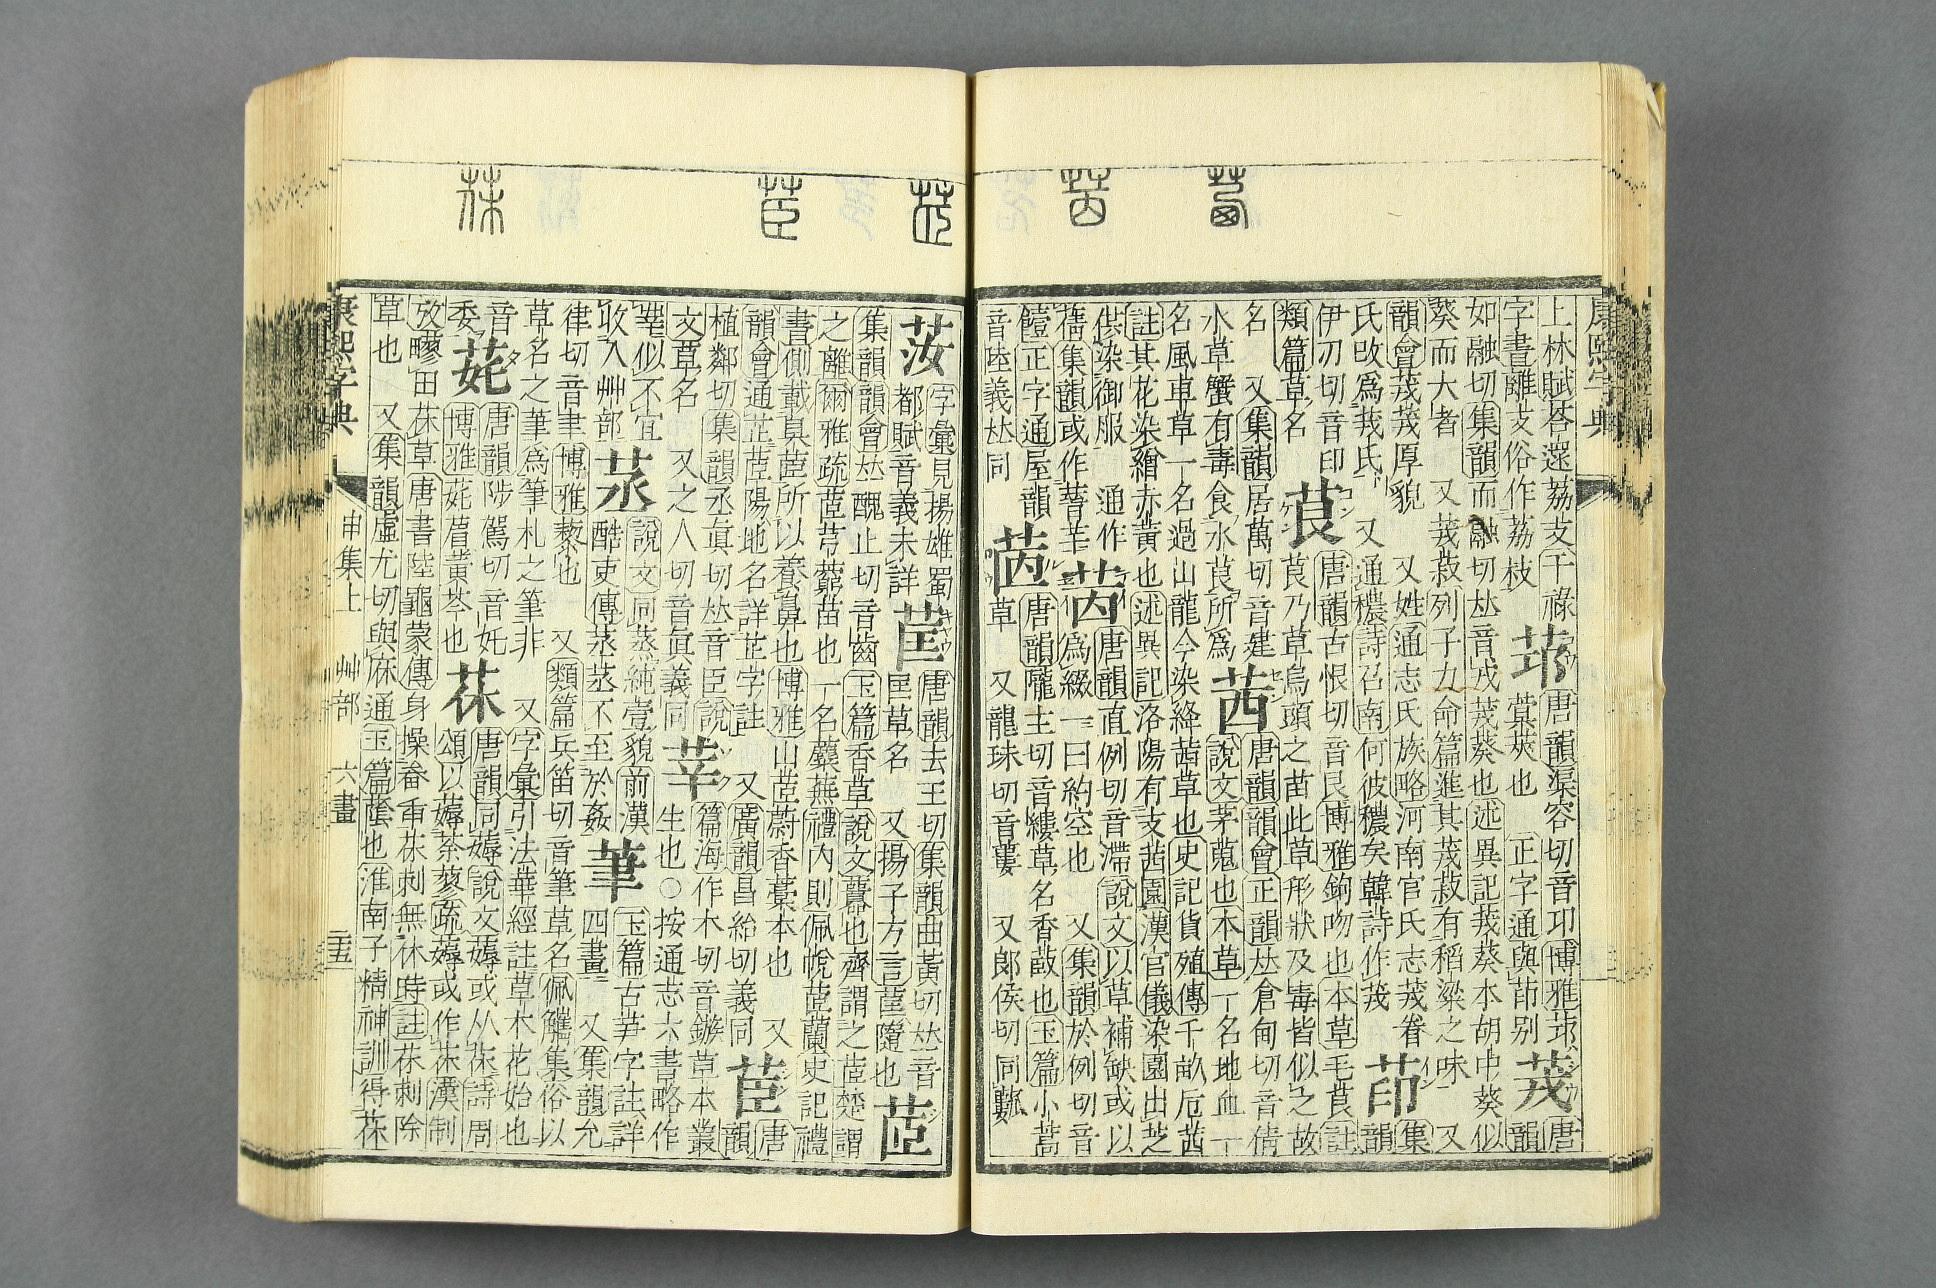 康熙字典
上林賦荅遝荔支干祿
字書離支俗作荔枝
唐韻渠容切音邛博雅
蓂莢也 正字通與 别
茙
唐
韻
如融切集韻而融切𠀤音戎茙葵也述異記茙葵本胡中葵似
葵而大者 又茙菽列子力命篇進其茙菽有稻粱之味 又
韻會茙茙厚貌 又姓通志氏族略河南官氏志茙眷
氏攺爲茙氏 又通穠詩召南何彼穠矣韓詩作茙
茚
集
韻
伊刃切音印
類篇草名
茛
唐韻古恨切音艮博雅鉤吻也本草毛茛註
茛乃草烏頭之苗此草形狀及毒皆似之故
名 又集韻居萬切音建
水草蟹有毒食水茛所爲
茜
唐韻韻會正韻𠀤倉甸切音倩
說文茅蒐也本草一名地血一
名風車草一名過山龍今染絳茜草也史記貨殖傳千畝卮茜
註其花染繒赤黃也述異記洛陽有支茜園漢官儀染園出芝
供染御服 通作
蒨集韻或作
唐韻直例切音滯說文以草補缺或以
爲綴一曰約空也 又集韻於例切音
饐正字通屋韻
音陸義𠀤同
唐韻隴主切音縷草名香蕺也玉篇小蒿
草 又龍珠切音蔞 又郎侯切同
字彙見揚雄蜀
都賦音義未詳
䒰
唐韻去王切集韻曲黃切𠀤音
匡草名 又揚子方言䒰隨也
茝
集韻韻會𠀤醜止切音齒玉篇香草說文虈也齊謂之茝楚謂
之離爾雅疏茝芎藭苗也一名蘪蕪禮內則佩帨茝蘭史記禮
書側載臭茝所以養鼻也博雅山茝蔚香藁本也 又
韻會通芷茝陽地名詳芷字註 又廣韻昌紿切義同
茞
唐
韻
植鄰切集韻丞眞切𠀤音臣說
文草名 又之人切音眞義同
篇海作木切音鏃草本叢
生也○按通志六書略作
丵似不宜
收入艸部
說文同蒸純壹貌前漢
酷吏傳 不至於姦
茟
玉篇古 字註詳
四畫 又集韻允
律切音聿博雅藜也 又類篇兵笛切音筆草名佩觿集俗以
草名之筆爲筆札之筆非 又字彙引法華經註草木花始也
音
委
唐韻陟駕切音奼
博雅 黃芩也
茠
唐韻同薅說文薅或从茠詩周
頌以薅荼蓼疏薅或作茠漢制
攷疁田茠草唐書陸龜蒙傳身操畚臿茠刺無休時註茠刺除
草也 又集韻虛尤切與庥通玉篇蔭也淮南子精神訓得茠
康熙字典 申集上 艸部 六畫